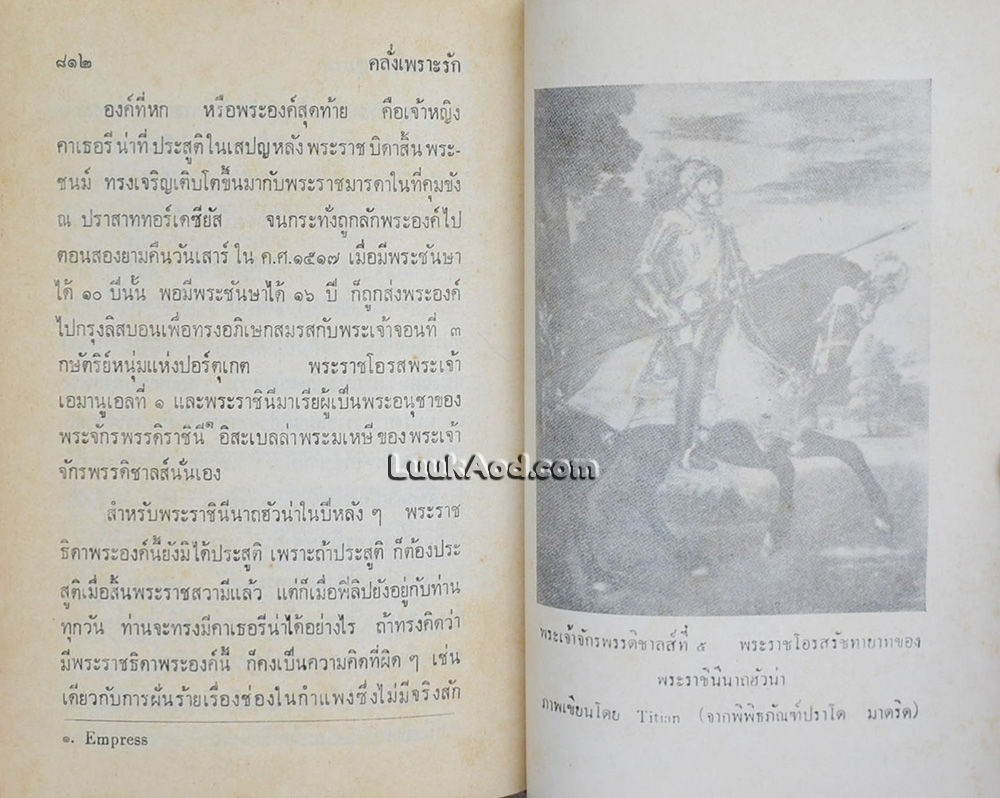 ๘๑๒ คลั่งเพราะรัก
องค์ที่หก หรือพระองค์สุดท้าย คือเจ้าหญิง
คาเธอรีน่าที่ประสูติในเสปญหลังพระราชบิดาสิ้นพระ-
ชนม์ ทรงเจริญเติบโตขึ้นมากับพระราชมารดาในที่คุมขัง
ณ ปราสาททอร์เดซียัส จนกระทั่งถูกลักพระองค์ไป
ตอนสองยามคืนวันเสาร์ ใน ค.ศ.๑๕๑๗ เมื่อมีพระชันษา
ได้ ๑๐ ปีนั้น พอมีพระชันษาได้ ๑๖ ปี ก็ถูกส่งพระองค์
ไปกรุงลิสบอนเพื่อทรงอภิเษกสมรสกับพระเจ้าจอนที่ ๓
กษัตริย์หนุ่มแห่งปอร์ตุเกต พระราชโอรสพระเจ้า
เอมานูเอลที่ ๑ และพระราชินีมาเรียผู้เป็นพระอนุชาของ
พระจักรพรรดิราชินี๑ อิสะเบลล่าพระมเหษีของพระเจ้า
จักรพรรดิชาลส์นั่นเอง
สำหรับพระราชินีนาถฮัวน่าในปีหลัง ๆ พระราช
ธิดาพระองค์นี้ยังมิได้ประสูติ เพราะถ้าประสูติ ก็ต้องประ
สูติเมื่อสิ้นพระราชสวามีแล้ว แต่ก็เมื่อฟิลิปยังอยู่กับท่าน
ทุกวัน ท่านจะทรงมีคาเธอรีน่าได้อย่างไร ถ้าทรงคิดว่า
มีพระราชธิดาพระองค์นี้ ก็คงเป็นความคิดที่ผิด ๆ เช่น
เดียวกับการฝันร้ายเรื่องช่องในกำแพงซึ่งไม่มีจริงสัก
๑. Empress
พระเจ้าจักรพรรดิชาลส์ที่ ๕ พระราชโอรสรัชทายาทของ
พระราชินีนาถฮัวน่า
ภาพเขียนโดย Titian (จากพิพิธภัณฑ์ปราโด มาดริด)
LuukAod.com